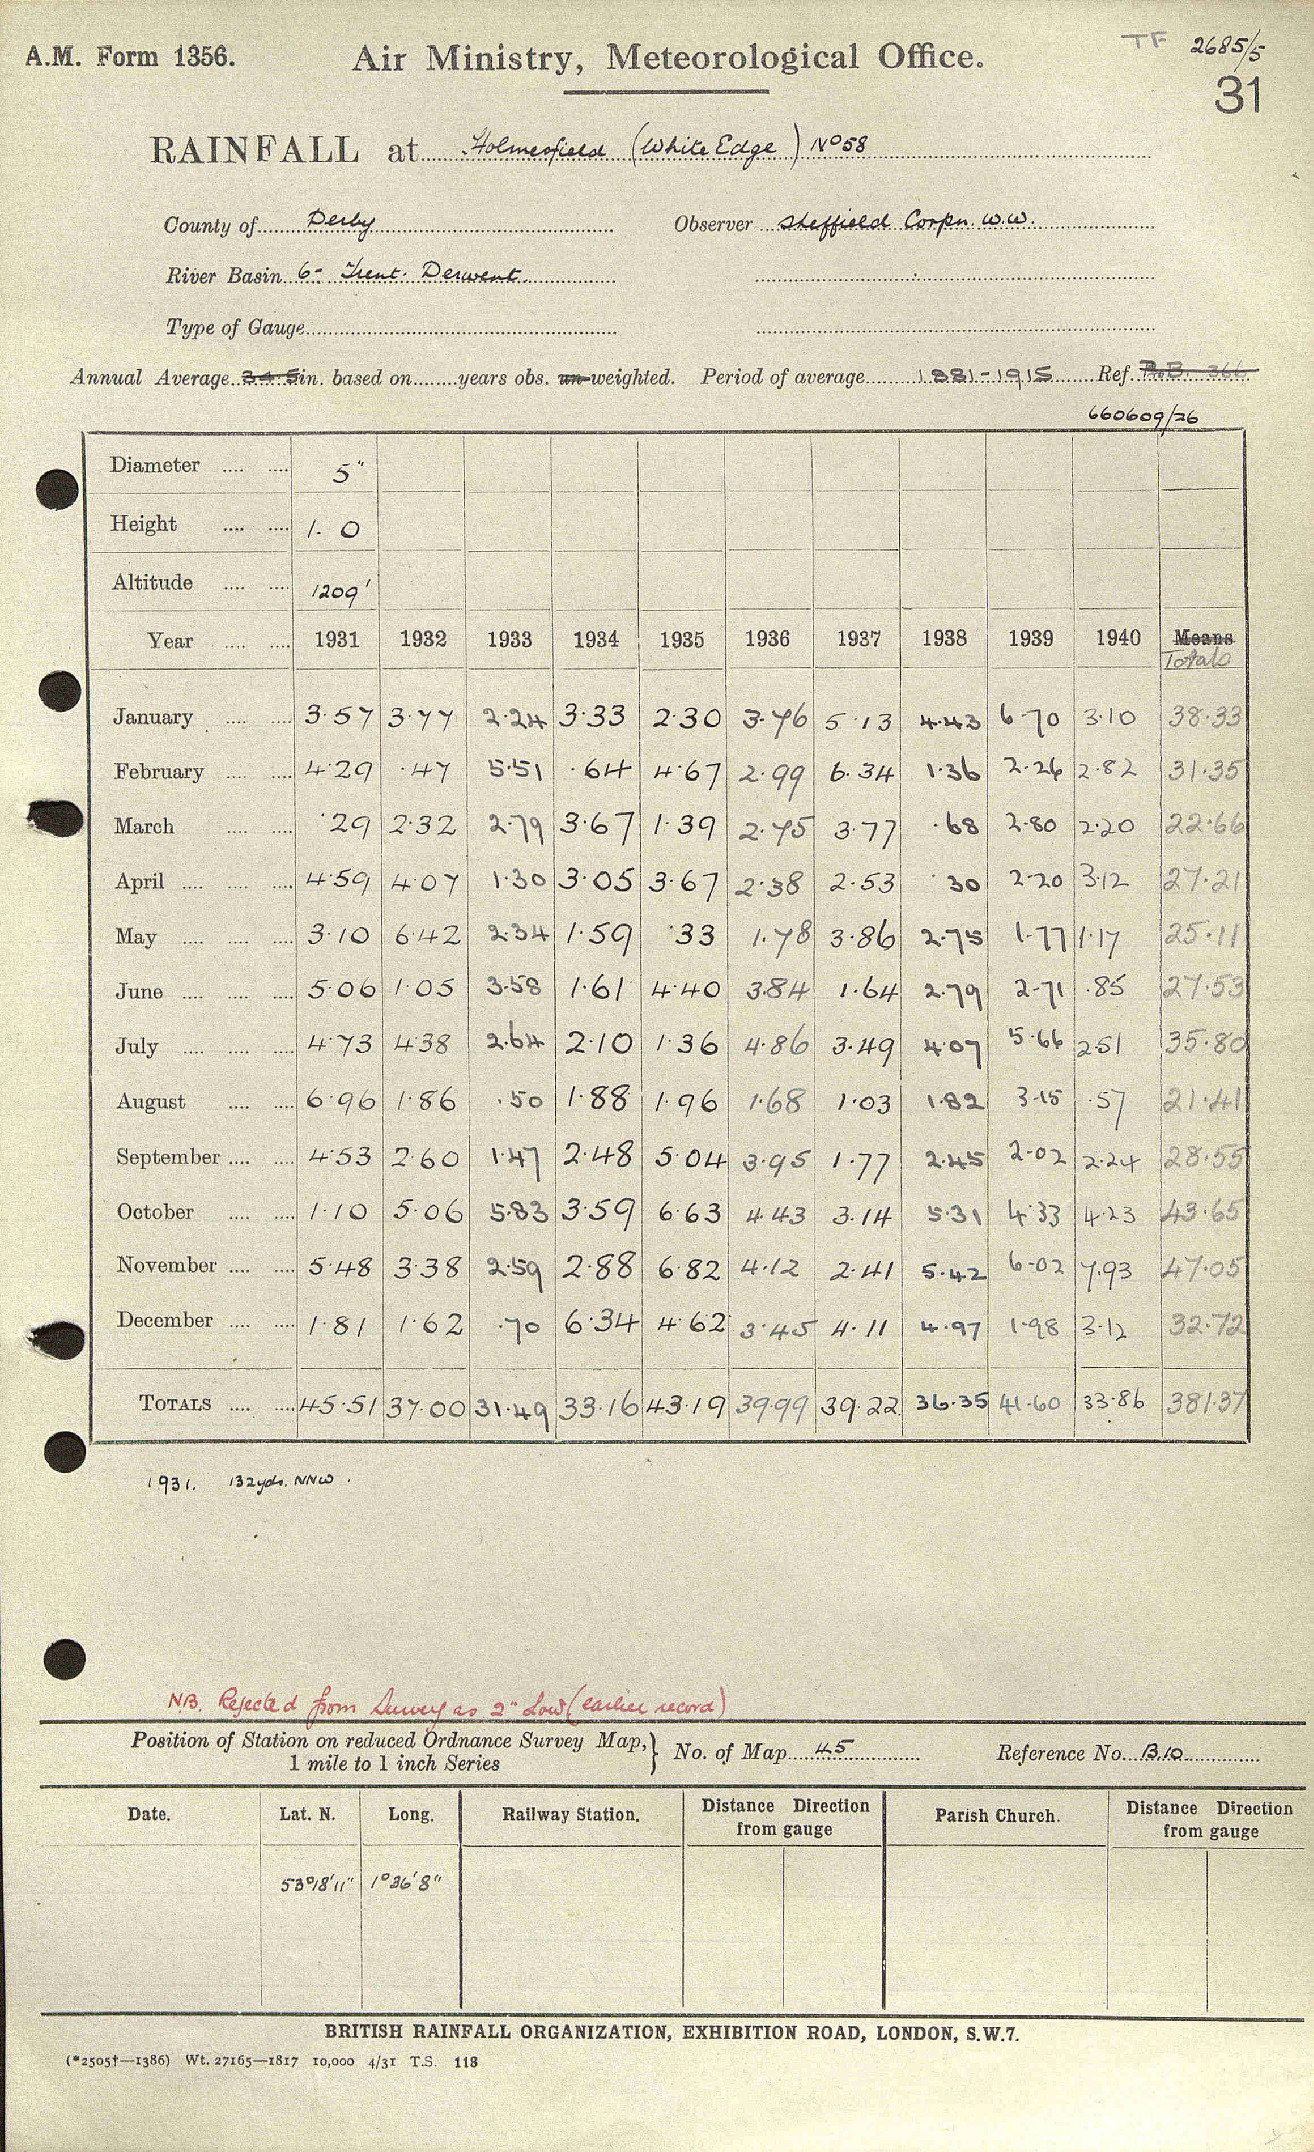 A.M. Form 1356.
Air Ministry, Meteorological Office.
TF 2685/5
31
RAINFALL at Holmesfield (White Edge) No 58
County of Derby Observer Sheffield Corpn. W.W.
River Basin 6- Trent. Derwent
Type of Gauge
Annual Average 34.5 in. based on years obs. un-weighted. Period of average 1881-1915 Ref. R.B. 366
660609/26
Diameter 5"
Height 1. 0
Altitude 1209'
Year 1931 1932 1933 1934 1935 1936 1937 1938 1939 1940 Means
Totals
January 3.57 3.77 2.24 3.33 2.30 3.76 5.13 4.43 6.70 3.10 38.33
February 4.29 .47 5.51 .64 4.67 2.99 6.34 1.36 2.26 2.82 31.35
March .29 2.32 2.79 3.67 1.39 2.75 3.77 .68 2.80 2.20 22.66
April 4.59 4.07 1.30 3.05 3.67 2.38 2.53 .30 2.20 3.12 27.21
May 3.10 6.42 2.34 1.59 .33 1.78 3.86 2.75 1.77 1.17 25.11
June 5.06 1.05 3.58 1.61 4.40 3.84 1.64 2.79 2.71 .85 27.53
July 4.73 4.38 2.64 2.10 1.36 4.86 3.49 4.07 5.66 2.51 35.80
August 6.96 1.86 .50 1.88 1.96 1.68 1.03 1.82 3.15 .57 21.41
September 4.53 2.60 1.47 2.48 5.04 3.95 1.77 2.45 2.02 2.24 28.55
October 1.10 5.06 5.83 3.59 6.63 4.43 3.14 5.31 4.33 4.23 43.65
November 5.48 3.38 2.59 2.88 6.82 4.12 2.41 5.42 6.02 7.93 47.05
December 1.81 1.62 .70 6.34 4.62 3.45 4.11 4.97 1.98 3.12 32.72
TOTALS 45.51 37.00 31.49 33.16 43.19 39.99 39.22 36.35 41.60 33.86 381.37
1931. 132 yds. NNW.
N.B. Rejected from Survey as 2" low (earlier record)
Position of Station on reduced Ordnance Survey Map, 1 mile to 1 inch Series } No. of Map 45 Reference No. B.10
Date. Lat. N. Long. Railway Station. Distance Direction from gauge Parish Church. Distance Direction from gauge
53°18'11" 1°36'8"
BRITISH RAINFALL ORGANIZATION, EXHIBITION ROAD, LONDON, S.W.7.
(*2505†—1386) Wt. 27165—1817 10,000 4/31 T.S. 118